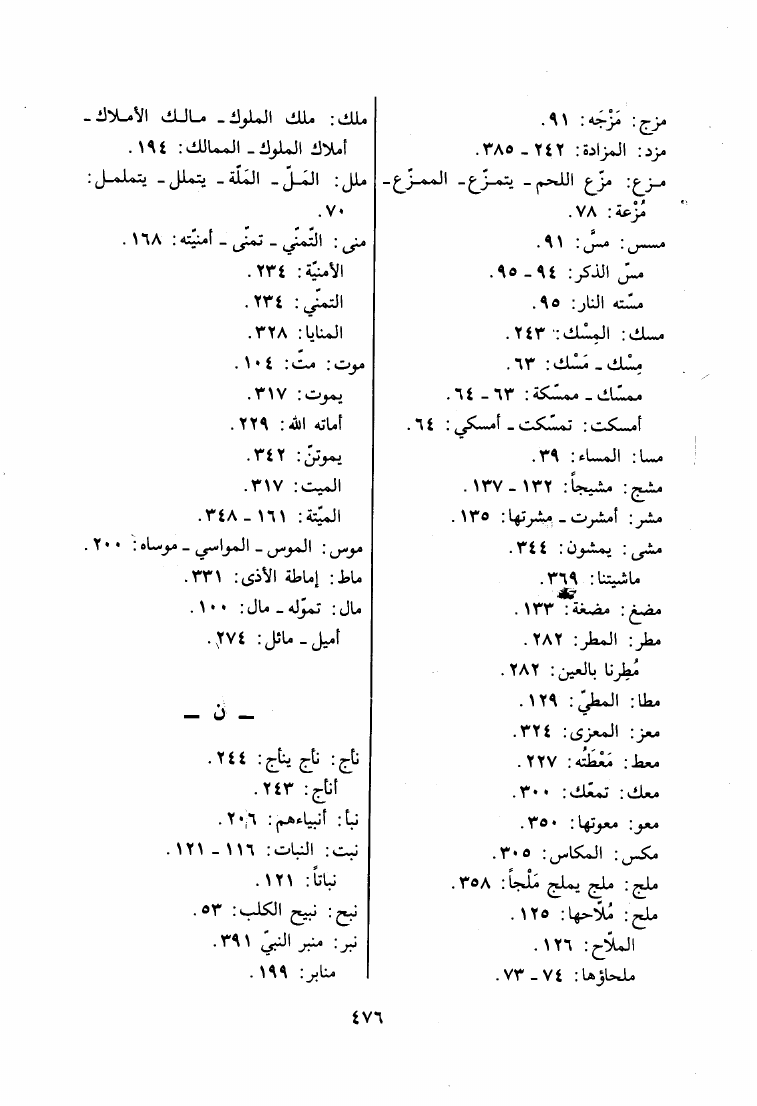 مزج: مَزْجَه: ٩١.
مزد: المزادة: ٢٤٢ ـ ٣٨٥.
مـزع: مزّع اللحم ـ يتمـزّع ـ الممـزّع ـ
مُزْعة: ٧٨.
مسس: مسَّ: ٩١.
مسّ الذكر: ٩٤ ـ ٩٥.
مسّته النار: ٩٥.
مسك: المِسْك: ٢٤٣.
مِسْك ـ مَسْك: ٦٣.
ممسّك ـ ممسّكة: ٦٣ ـ ٦٤.
أمسكت: تمسّكت ـ أمسكي: ٦٤.
مسا: المساء: ٣٩.
مشج: مشيجاً: ١٣٢ ـ ١٣٧.
مشر: أمشرت ـ مشرتها: ١٣٥.
مشى: يمشون: ٣٤٤.
ماشيتنا: ٣٦٩.
مضغ: مضغة: ١٣٣.
مطر: المطر: ٢٨٢.
مُطِرنا بالعين: ٢٨٢.
مطا: المطيّ: ١٢٩.
معز: المعزى: ٣٢٤.
معط: مَعْطَتُه: ٢٢٧.
معك: تمعّك: ٣٠٠.
معو: معوتها: ٣٥٠.
مكس: المكاس: ٣٠٥.
ملج: ملج يملج مَلْجاً: ٣٥٨.
ملح: مُلّاحها: ١٢٥.
الملّاح: ١٢٦.
ملحاؤها: ٧٤ ـ ٧٣.
ملك: ملك الملوك ـ مـالـك الأمـلاك ـ
أملاك الملوك ـ الممالك: ١٩٤.
ملل: المَـلّ ـ المَلّة ـ يتملل ـ يتململ:
٧٠.
منى: التّمنّي ـ تمنّى ـ أمنيّته: ١٦٨.
الأمنيّة: ٢٣٤.
التمنّي: ٢٣٤.
المنايا: ٣٢٨.
موت: متّ: ١٠٤.
يموت: ٣١٧.
أماته الله: ٢٢٩.
يموتنّ: ٣٤٢.
الميت: ٣١٧.
الميّتة: ١٦١ ـ ٣٤٨.
موس: الموس ـ المواسي ـ موساه: ٢٠٠.
ماط: إماطة الأذى: ٣٣١.
مال: تموّله ـ مال: ١٠٠.
أميل ـ مائل: ٢٧٤.
ـ ن ـ
نأج: نأج ينأج: ٢٤٤.
أنأج: ٢٤٣.
نبأ: أنبياءهم: ٢٠٦.
نبت: النبات: ١١٦ ـ ١٢١.
نباتاً: ١٢١.
نبح: نبيح الكلب: ٥٣.
نبر: منبر النبيّ ٣٩١.
منابر: ١٩٩.
٤٧٦